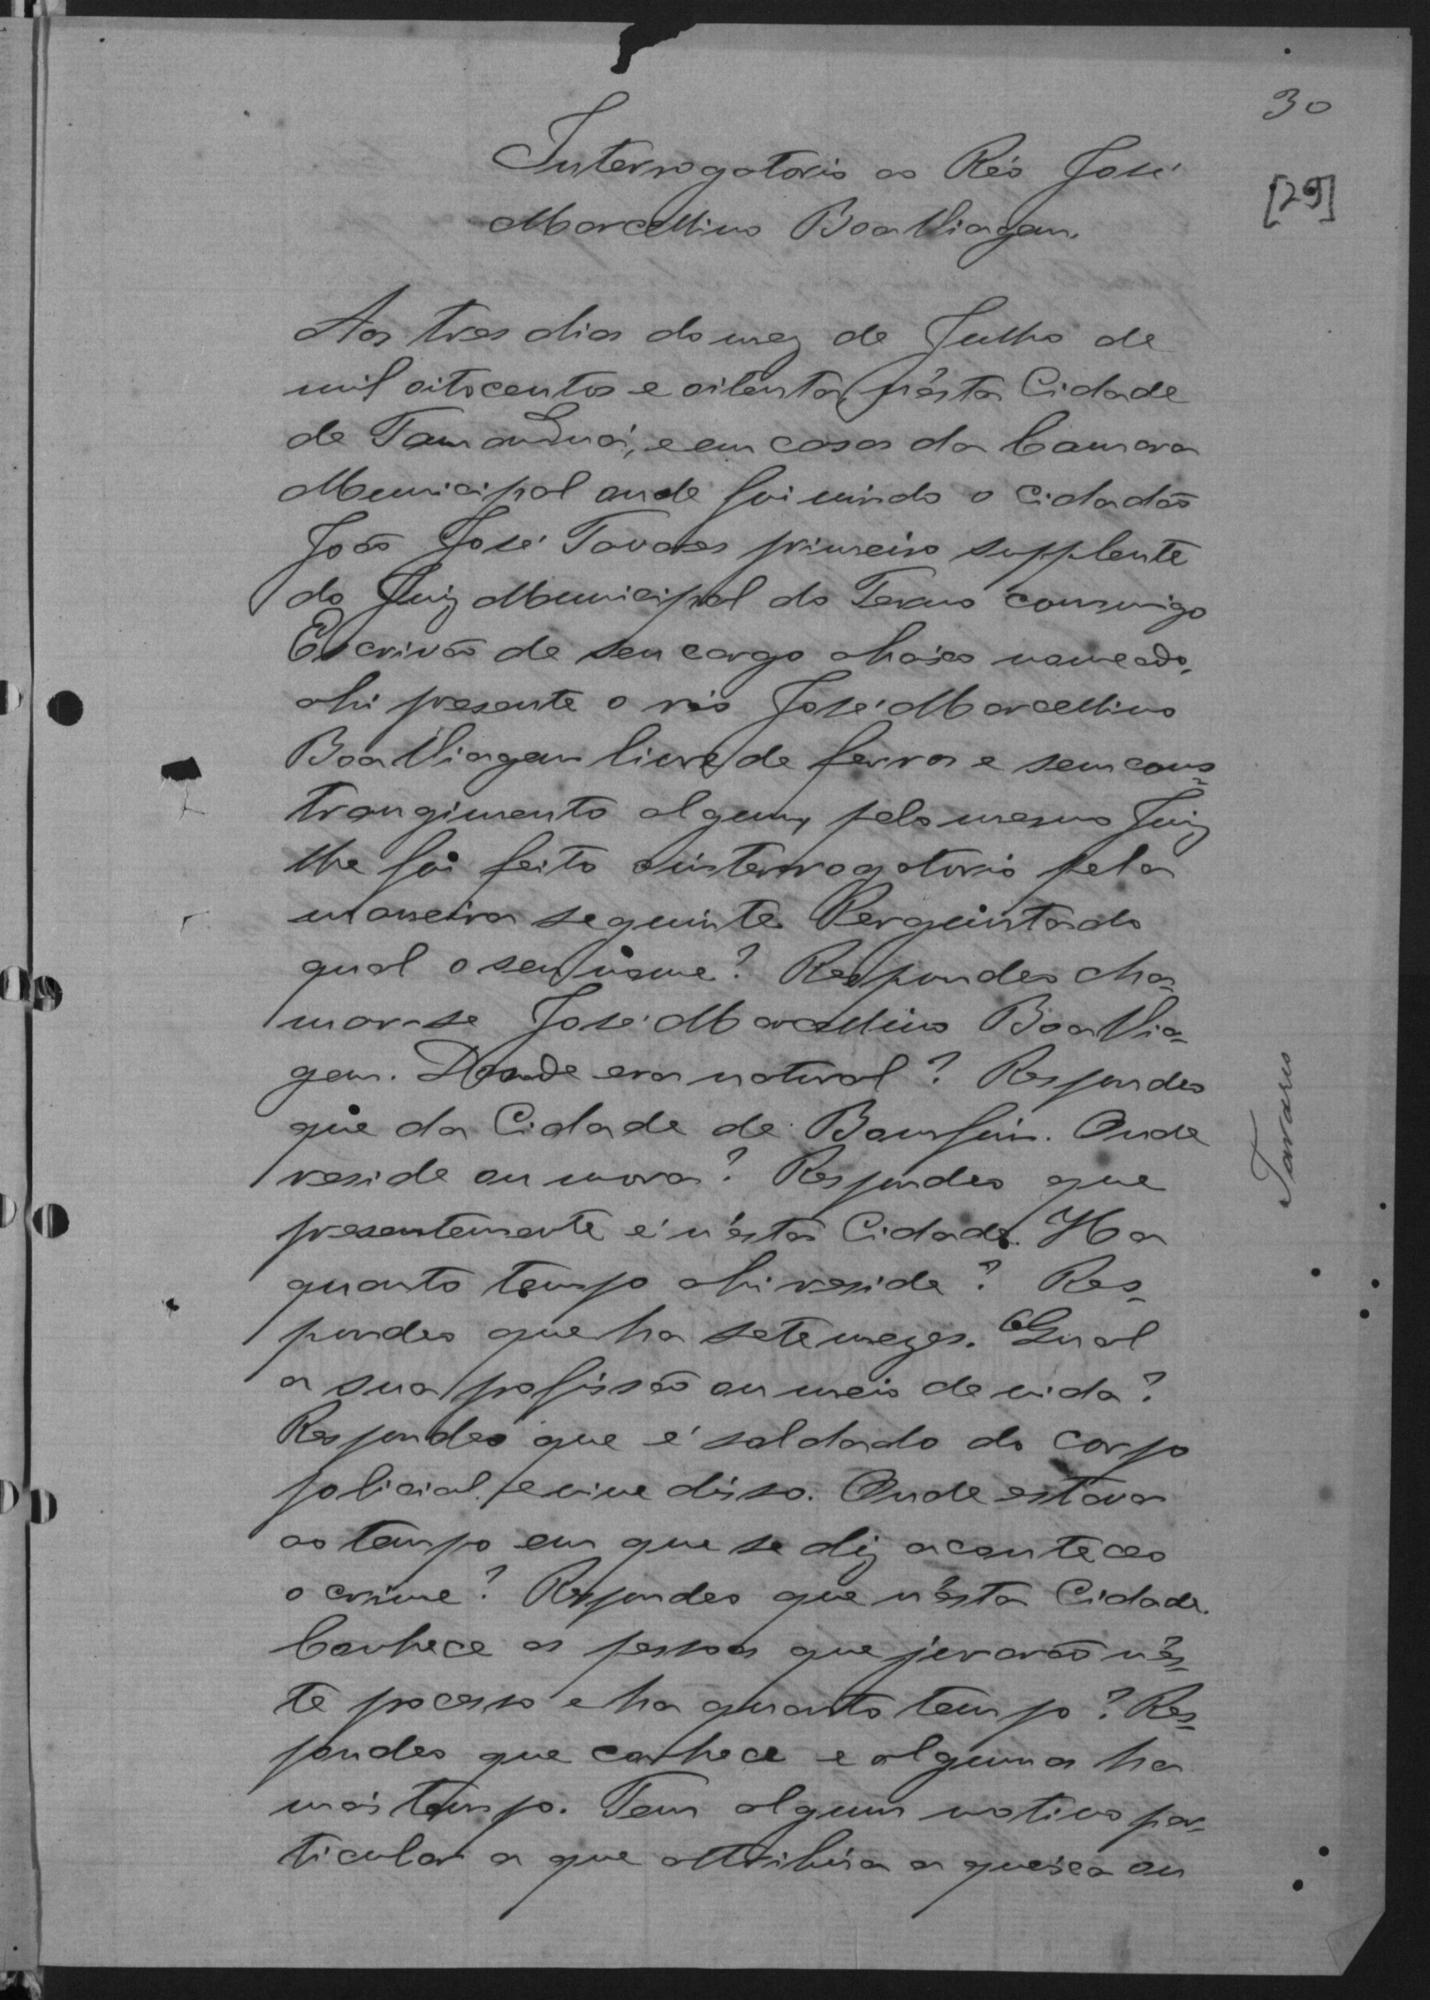 30
[29]
Interrogatorio ao Réo José
Marcellino Boa Viagem.
Aos tres dias do mez de Julho de
mil oitocentos e oitenta, n'ésta Cidade
de Tamanduá, e em casa da Camara
Municipal onde foi vindo o Cidadão
João José Tavares primeiro supplente
do Juiz Municipal do Termo commigo
Escrivão de seu cargo abaixo nomeado,
ahi presente o réo José Marcellino
Boa Viagem livre de ferros e sem cons-
trangimento algum, pelo mesmo Juiz
lhe foi feito o interrogatorio pela
maneira seguinte. Perguntado
qual o seu nome? Respondeo cha-
mar-se José Marcellino Boa Via-
gem. Donde era natural? Respondeo
que da Cidade de Bomfim. Onde
reside ou mora? Respondeo que
presentemente é n'ésta Cidade. Ha
quanto tempo ahi reside? Res-
pondeo que ha sete mezes. Qual
a sua pofissão ou meio de vida?
Respondeo que é soldado do corpo
policial, e vive disso. Onde estava
ao tempo em que se diz aconteceo
o crime? Respondeo que n'ésta Cidade.
Conhece as pessoas que jurarão n'és-
te pocesso e ha quanto tempo? Res-
pondeo que conhece e algumas ha
mais tempo. Tem algum motivo par-
ticular a que attribúa a queixa ou
Tavares